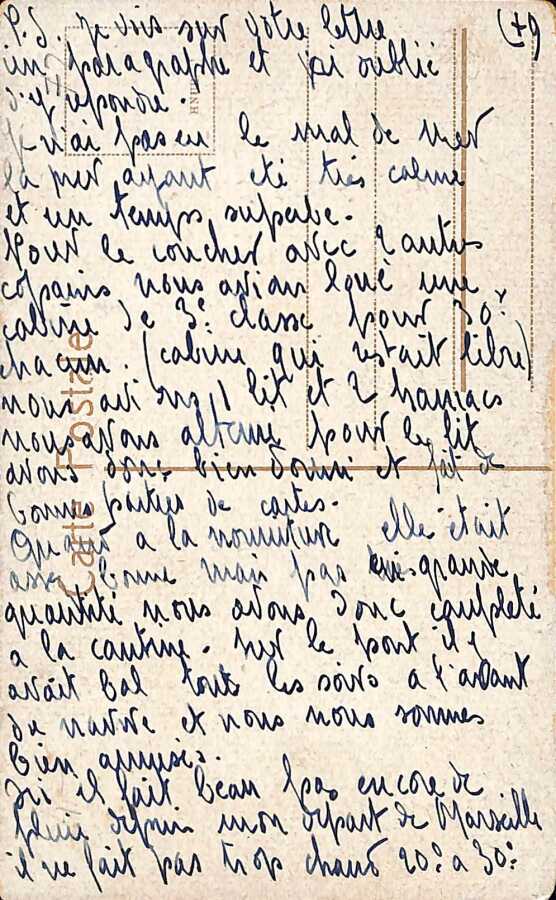 P.S. je vois sur votre lettre (4)
un paragraphe et j'ai oublié
d'y repondre.
Je n'ai pas eu le mal de mer
la mer ayant eté très calme
et un temps superbe.
Pour le coucher avec 2 autres
copains nous avian loué une
cabine de 3e classe pour 30
chacun. (cabine qui estait libre)
nous avions 1 lit et 2 hamacs
nous avons alterné pour le lit
avons donc bien dormi et fait de
bonnes parties de cartes.
Quand a la nourriture elle était
assez bonne mais pas en grande
quantité nous avons donc completé
a la cantine. Sur le pont il y
avait bal touts les soirs a l'avant
du navire et nous nous sommes
bien amusés.
Ici il fait beau pas encore de
pluie depuis mon depart de Marseille
il ne fait pas trop chaud 20° a 30°
Carte Postale